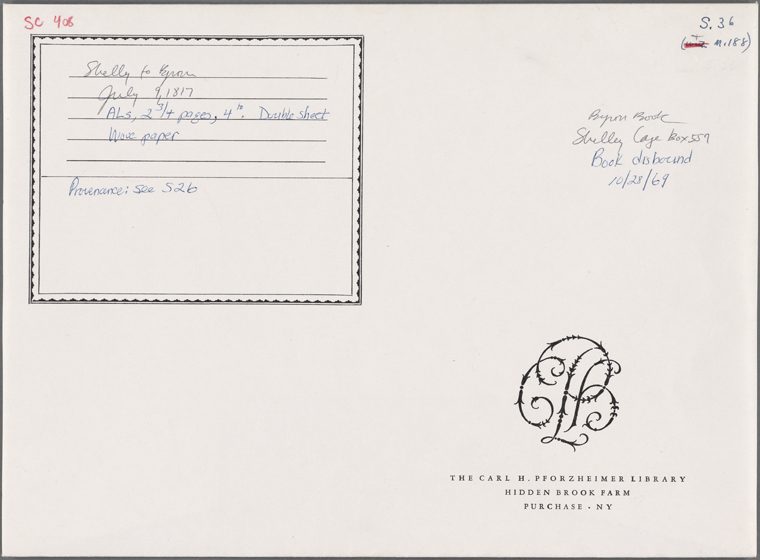 SC 408
S. 36
M.188)
Shelly to Byron
July 9, 1817
ALs, 2 3/4 pages, 4to. Double sheet
Wove paper
Provenance: see S26
Byron Book
Shelley Case Box 557
Book disbound
10/28/69
THE CARL H. PFORZHEIMER LIBRARY
HIDDEN BROOK FARM
PURCHASE - NY